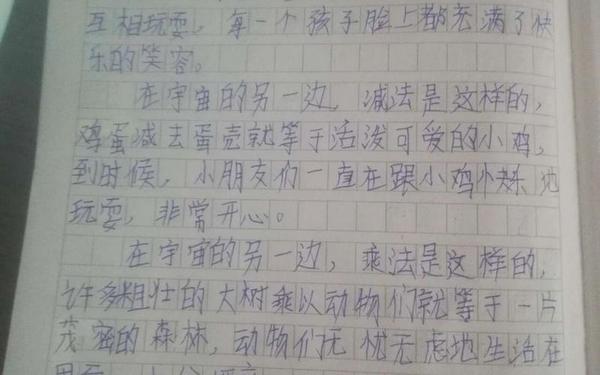 互相玩耍，每一个孩子脸上都充满了快
乐的笑容。
在宇宙的另一边，减法是这样的，
鸡蛋减去蛋壳就等于活泼可爱的小鸡，
到时候，小朋友们一直在跟小鸡快乐地
玩耍，非常开心。
在宇宙的另一边，乘法是这样的，
许多粗壮的大树乘以动物们就等于一片
茂密的森林，动物们无忧无虑地生活在